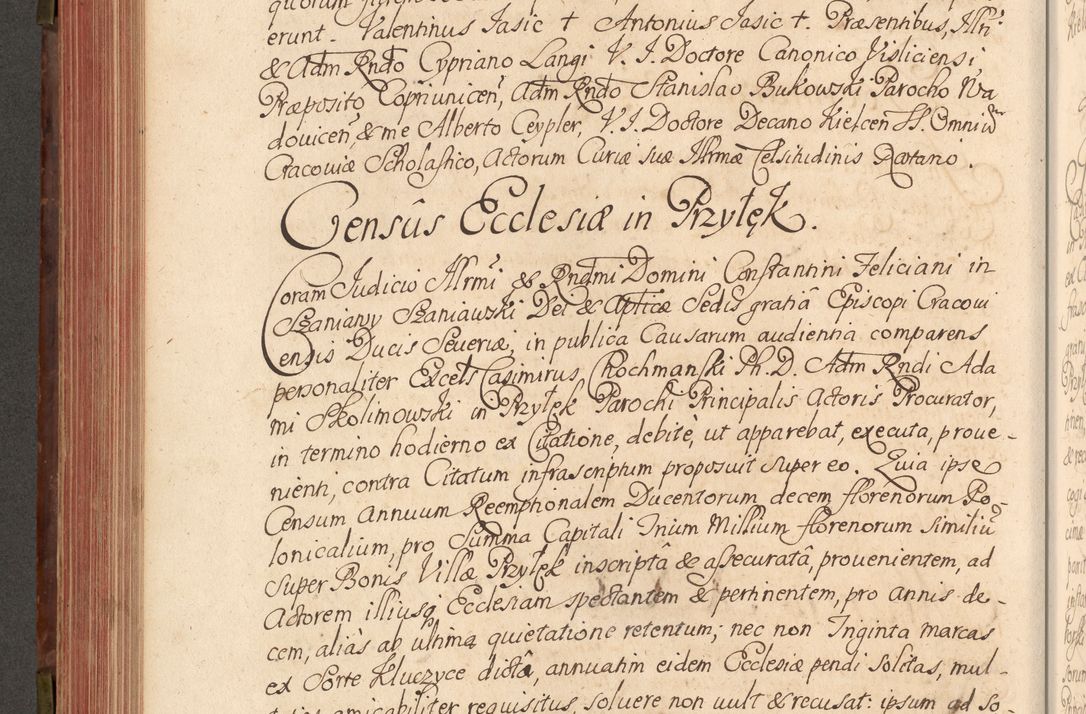 erunt. Valentinus Jasic + Antonius Jasic +. Præsentibus, Illri
& Adm Rndo Cypriano Langi V. I. Doctore Canonico Visliciensi
Præposito Copriunicen, Adm Rndo Stanislao Bukowski Parocho Wa
dovicen, & me Alberto Ceypler, V. I. Doctore Decano Kielcen SS. Omnium
Cracoviæ Scholastico, Actorum Curiæ suæ Illrmæ Celsitudinis Notario.
Censûs Ecclesiæ in Przyłęk.
Coram Judicio Illrmi & Rndmi Domini Constantini Feliciani in
Szaniawy Szaniawski Dei & Apticæ Sedis gratiâ Episcopi Cracovi
ensis Ducis Severiæ, in publica Causarum audientia comparens
personaliter Excels Casimirus Chochmański Ph. D. Adm Rndi Ada
mi Skolimowski in Przyłęk Parochi Principalis Actoris Procurator,
in termino hodierno ex Citatione, debitè, ut apparebat, executa, prove-
nienti, contra Citatum infrascriptum proposuit super eo. Quia ipse
Censum annuum Reemptionalem Ducentorum decem florenorum Po-
lonicalium, pro Summa Capitali Trium Millium florenorum Similiu
Super Bonis Villæ Przyłęk inscriptâ & assecuratâ, provenientem, ad
Actorem illiusq Ecclesiam spectantem & pertinentem, pro annis de-
cem, aliàs ab ultima quietatione retentum; nec non Triginta marcas
ex Sorte Kluczyce dictâ, annuatim eidem Ecclesiæ pendi solitas, mul-
amicabiliter requisitus, solvere non vult & recusat: ipsum ad so-